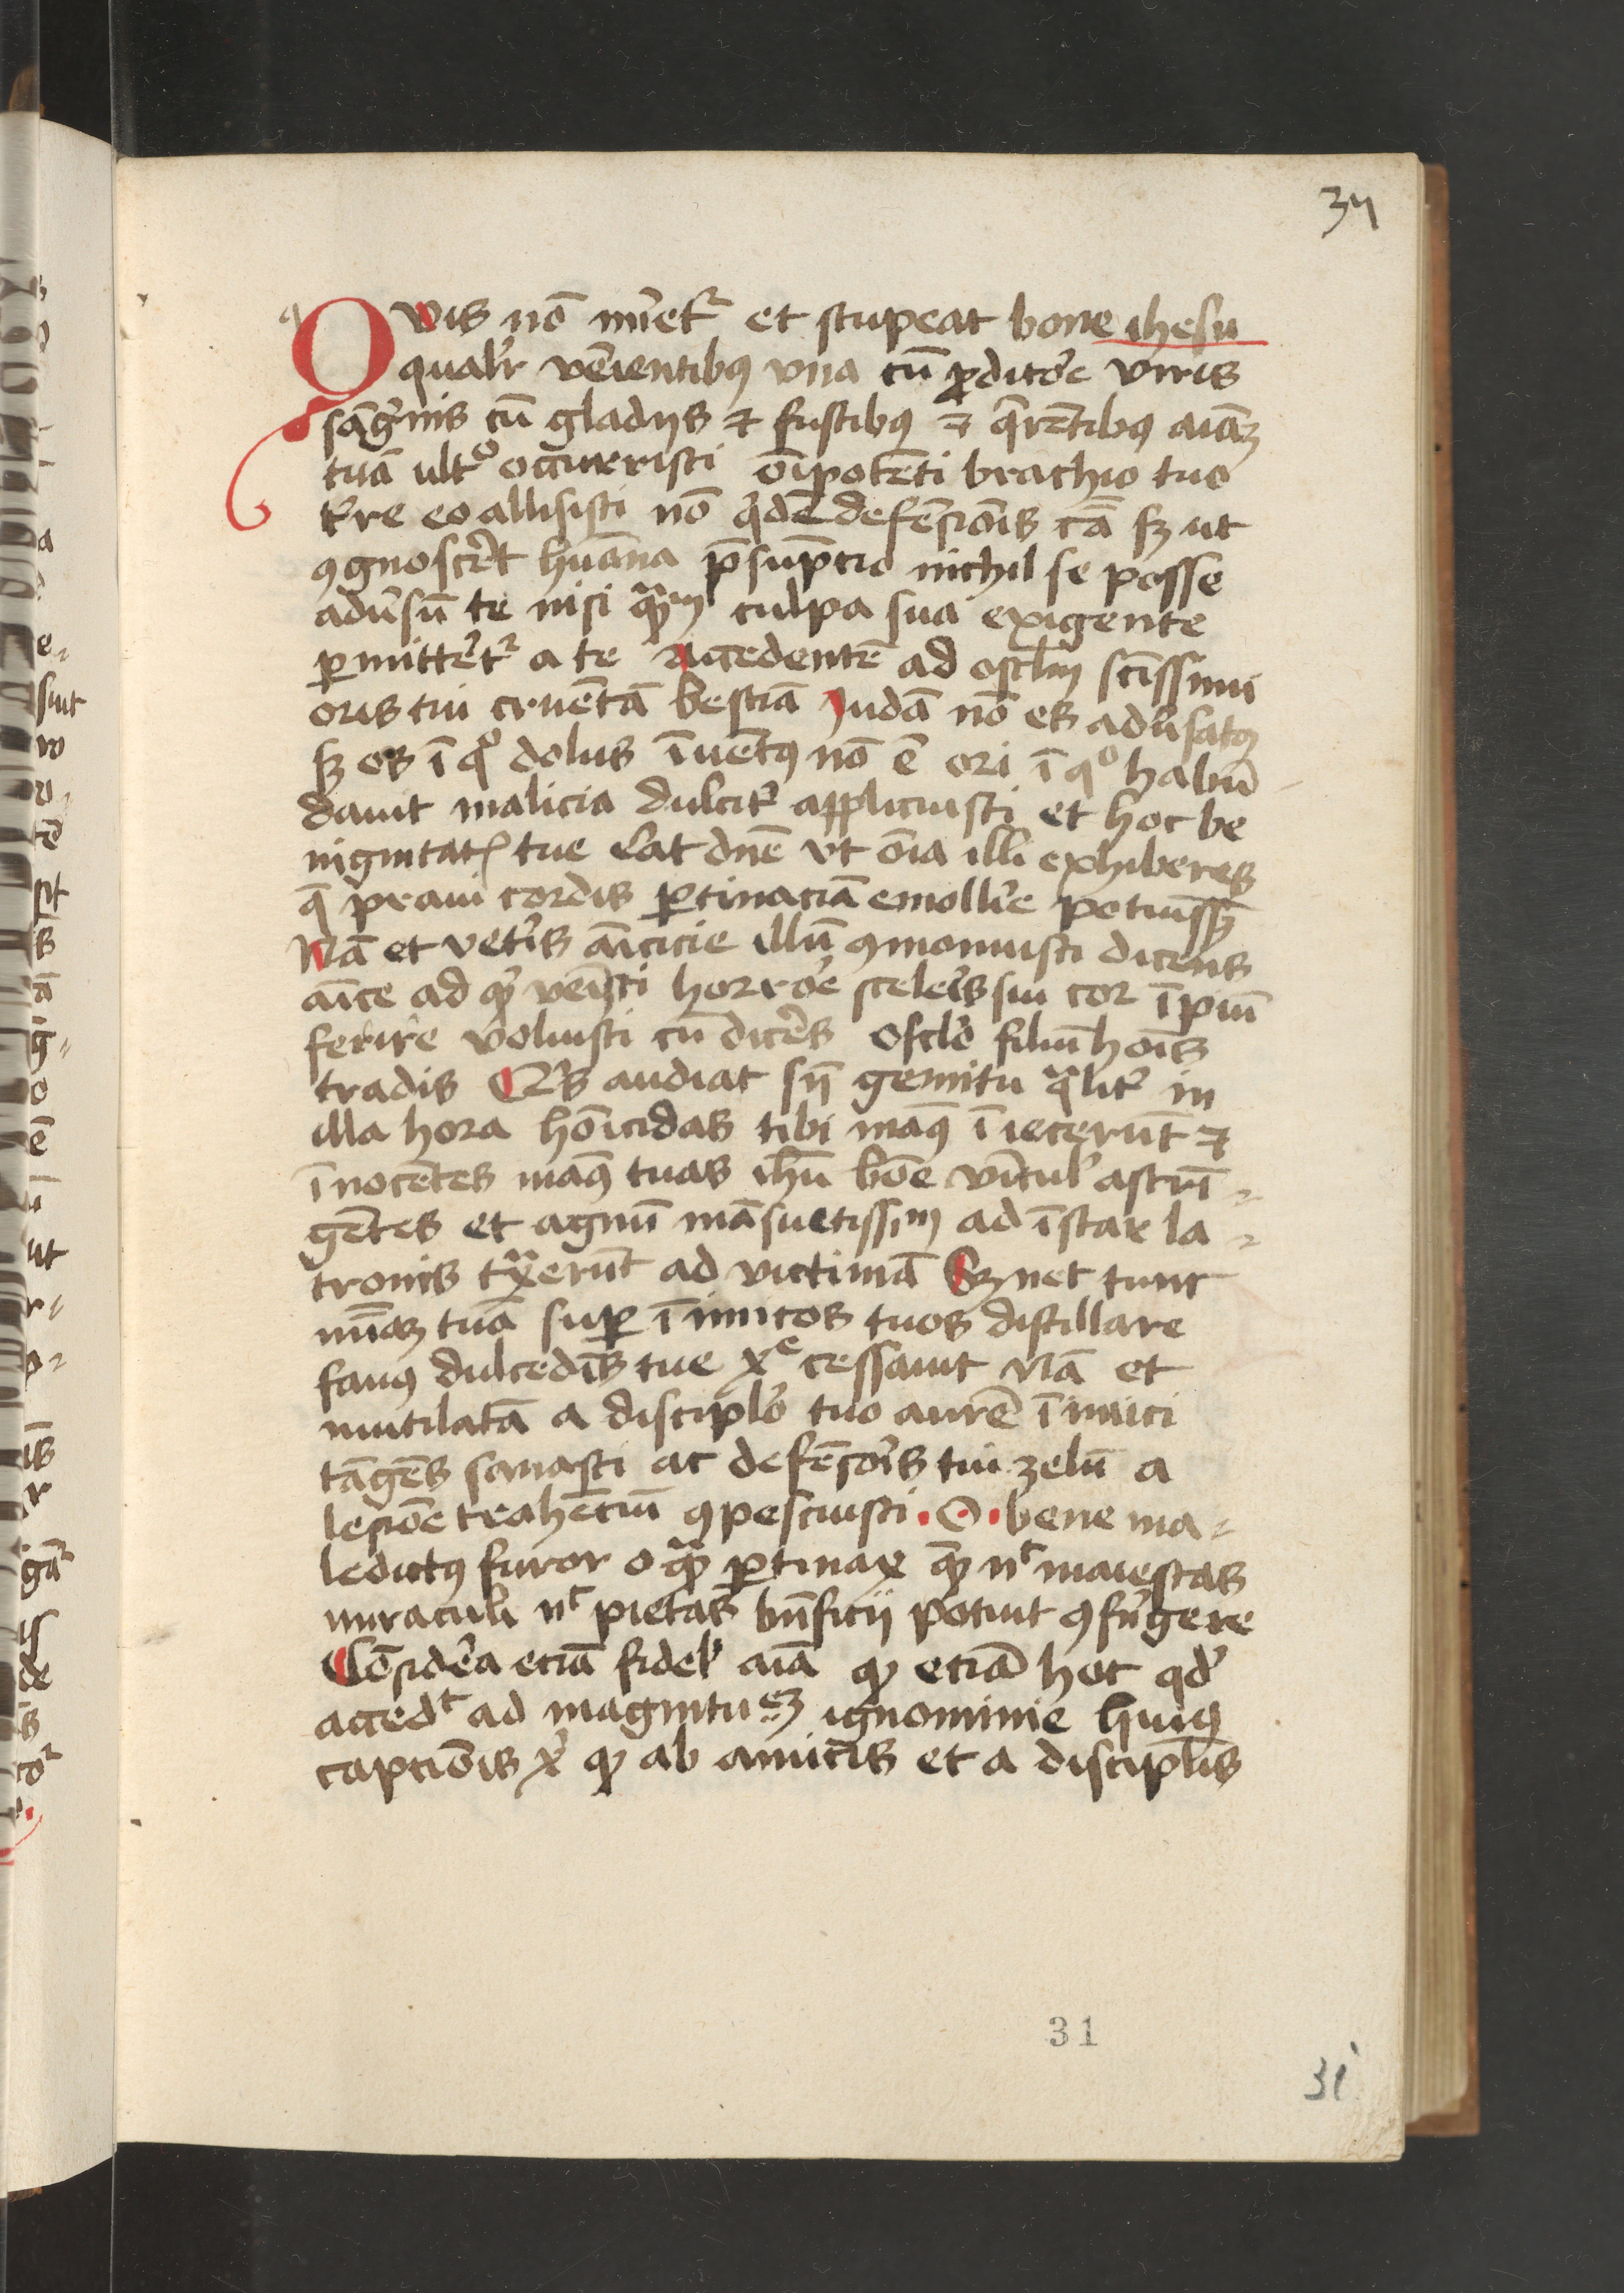 34
Qwis nō mi̅etr̉ et stupeat bone ihesu
qualr̉ ve̅ientibꝰ vna cū ꝓdito̅e viris
sāgͥnis cū gladijs ⁊ fustibꝰ ⁊ q̄re̅tibꝰ aiāꝫ
tuā ultͦ occurristi o̅ipote̅ti brachio tuo
tr̉re eo allisisti nō qͥdē defe̅sio̅is cā sꝫ ut
ꝯgnoscer̅t hūana p̄sūptio nichil se posse
adūsū te nisi qͣꝫ culpa sua exigente
ꝑmittēt̉ a te Accedentē ad osclm̄ sc̄issimi
oris tui crue̅tā bestiā Iudā nō es adūsatꝰ
sꝫ os ī qͦ dolus īue̅tꝰ nō ē ori ī qͦ habū
dauit malicia dulcit̉ applicuisti et hoc be
nignitatꝭ tue dn̄e vt o̅ia illi exhiberes
q̄ praui cordis ꝑtinaciā emollīe potuiss̅
Nā et vetīs a̅icicie illū ꝯmonuisti dicens
a̅ice ad qͥ ve̅isti horro̅e scele̅is sui cor īpiū
ferire voluisti cū dice̅s osclo̅ filiū ho̅is
tradis Qͥs audiat sn̄ gemitu qͣlit̉ in
illa hora ho̅icidas tibi maꝰ īiecerūt ⁊
īnoce̅tes maꝰ tuas ihū bo̅e vīcul̉ astrī-
ge̅tes et agnū māsuetissīm ad īstar la-
tronis tͣxerūt ad victimā Sꝫ nec tunc
tuā suꝑ īimicos tuos distillare
fauꝰ dulcedīs tue xͤ cessauit Nā et
mutilatā a discipl̉o tuo aurē īimici
tāge̅s sanasti ac defe̅so̅is tui zelū a
lesio̅e trahe̅tiū ꝯpescuisti. O. bene ma-
ledictꝰ furor o qͣꝫ ꝑtinax quē nͨ maiestas
miraculi nͨ pietas bn̄ficij potuit ꝯfrīgere
Cōsidēa etiā fidel̉ aīa ꝙ etiā hoc qd̉
accedͭ ad magnitu e̅ꝫ ignominie huiꝰ
captio̅is xͥ ꝙ ab amicis et a discipl̅is
31
31